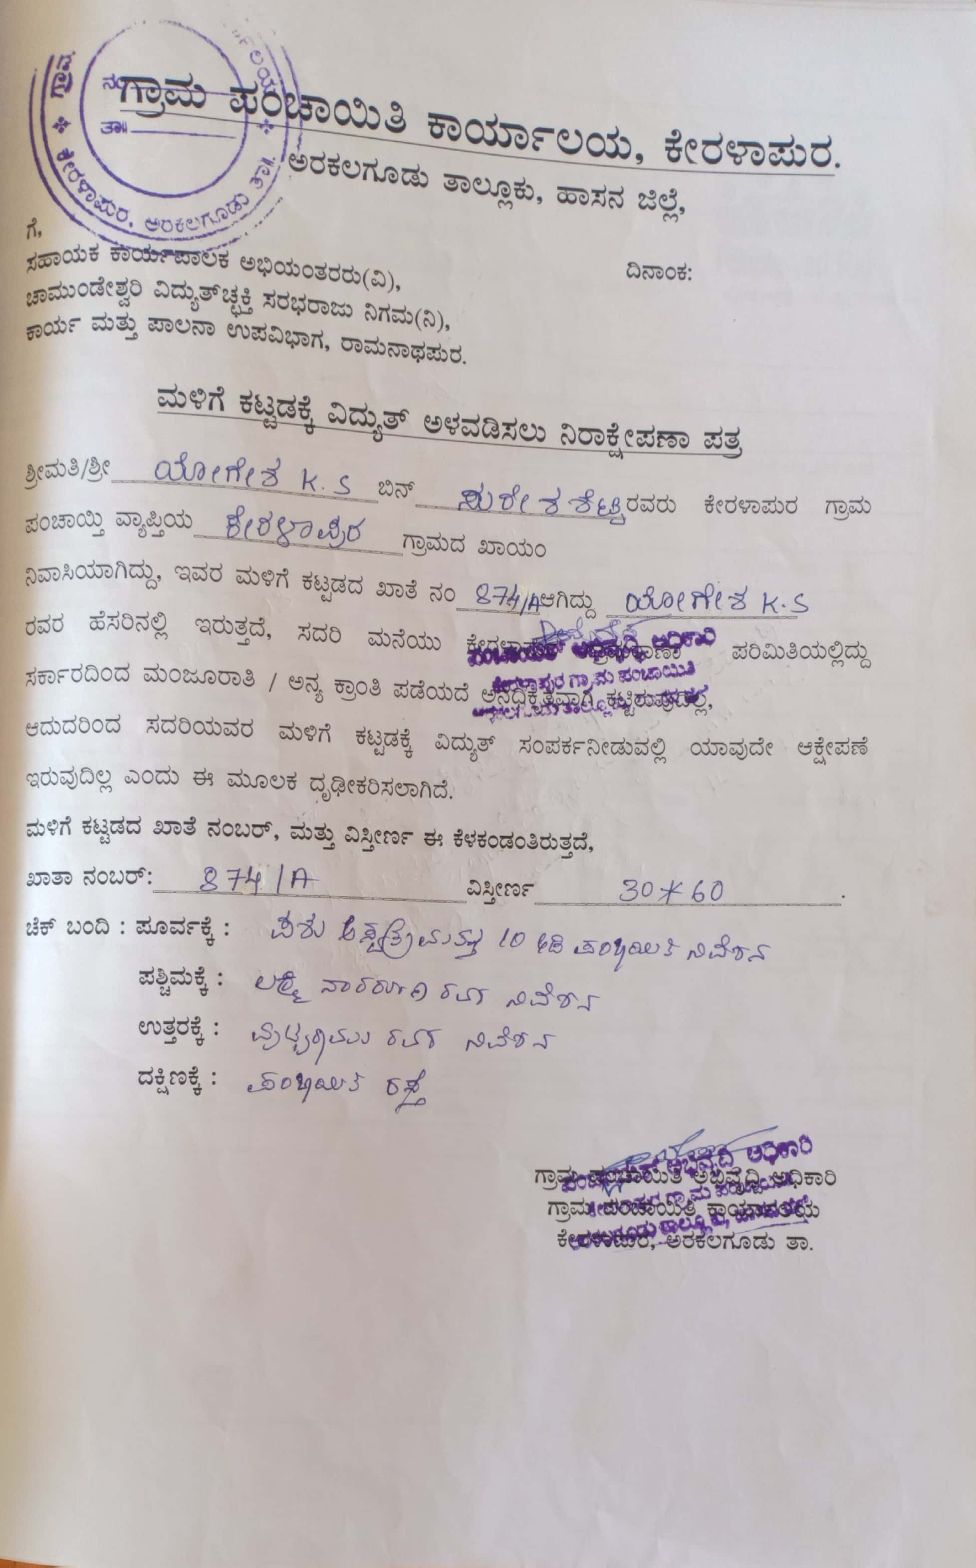 ಗ್ರಾಮ ಪಂಚಾಯಿತಿ ಕಾರ್ಯಾಲಯ, ಕೇರಳಾಪುರ.
ಅರಕಲಗೂಡು ತಾಲ್ಲೂಕು, ಹಾಸನ ಜಿಲ್ಲೆ,
ನಂ
ತಾ॥
ಕೇರಳಾಪುರ, ಅರಕಲಗೂಡು ತಾ॥
ಗೆ,
ಸಹಾಯಕ ಕಾರ್ಯಪಾಲಕ ಅಭಿಯಂತರರು(ವಿ), ದಿನಾಂಕ:
ಚಾಮುಂಡೇಶ್ವರಿ ವಿದ್ಯುತ್‌ಚ್ಛಕ್ತಿ ಸರಭರಾಜು ನಿಗಮ(ನಿ),
ಕಾರ್ಯ ಮತ್ತು ಪಾಲನಾ ಉಪವಿಭಾಗ, ರಾಮನಾಥಪುರ.
ಮಳಿಗೆ ಕಟ್ಟಡಕ್ಕೆ ವಿದ್ಯುತ್ ಅಳವಡಿಸಲು ನಿರಾಕ್ಷೇಪಣಾ ಪತ್ರ
ಶ್ರೀಮತಿ/ಶ್ರೀ ಯೋಗೇಶ K.S ಬಿನ್ ಸುರೇಶಶೆಟ್ಟಿ ರವರು ಕೇರಳಾಪುರ ಗ್ರಾಮ
ಪಂಚಾಯ್ತಿ ವ್ಯಾಪ್ತಿಯ ಕೇರಳಾಪುರ ಗ್ರಾಮದ ಖಾಯಂ
ನಿವಾಸಿಯಾಗಿದ್ದು, ಇವರ ಮಳಿಗೆ ಕಟ್ಟಡದ ಖಾತೆ ನಂ 874/A ಆಗಿದ್ದು ಯೋಗೇಶ K.S
ರವರ ಹೆಸರಿನಲ್ಲಿ ಇರುತ್ತದೆ, ಸದರಿ ಮನೆಯು ಪರಿಮಿತಿಯಲ್ಲಿದ್ದು
ಸರ್ಕಾರದಿಂದ ಮಂಜೂರಾತಿ / ಅನ್ಯ ಕ್ರಾಂತಿ ಪಡೆಯದೆ ಅನಧಿಕೃತವಾಗಿ ಕಟ್ಟಿರುವುದಿಲ್ಲ,
ಆದುದರಿಂದ ಸದರಿಯವರ ಮಳಿಗೆ ಕಟ್ಟಡಕ್ಕೆ ವಿದ್ಯುತ್ ಸಂಪರ್ಕನೀಡುವಲ್ಲಿ ಯಾವುದೇ ಆಕ್ಷೇಪಣೆ
ಇರುವುದಿಲ್ಲ ಎಂದು ಈ ಮೂಲಕ ದೃಢೀಕರಿಸಲಾಗಿದೆ.
ಮಳಿಗೆ ಕಟ್ಟಡದ ಖಾತೆ ನಂಬರ್, ಮತ್ತು ವಿಸ್ತೀರ್ಣ ಈ ಕೆಳಕಂಡಂತಿರುತ್ತದೆ,
ಖಾತಾ ನಂಬರ್: 874/A ವಿಸ್ತೀರ್ಣ 30*60.
ಚೆಕ್ ಬಂದಿ : ಪೂರ್ವಕ್ಕೆ : ಪಶು ಆಸ್ಪತ್ರೆ ಮತ್ತು 10 ಅಡಿ ಪಂಚಾಯಿತಿ ನಿವೇಶನ
ಪಶ್ಚಿಮಕ್ಕೆ : ಲಕ್ಷ್ಮಿ ನಾರಾಯಣ ರವರ ನಿವೇಶನ
ಉತ್ತರಕ್ಕೆ : ರವರ ನಿವೇಶನ
ದಕ್ಷಿಣಕ್ಕೆ : ಪಂಚಾಯಿತಿ ರಸ್ತೆ
ಗ್ರಾಮ ಪಂಚಾಯಿತಿ ಅಭಿವೃದ್ಧಿ ಅಧಿಕಾರಿ
ಗ್ರಾಮ ಪಂಚಾಯಿತಿ ಕಾರ್ಯಾಲಯ
ಕೇರಳಾಪುರ, ಅರಕಲಗೂಡು ತಾ.